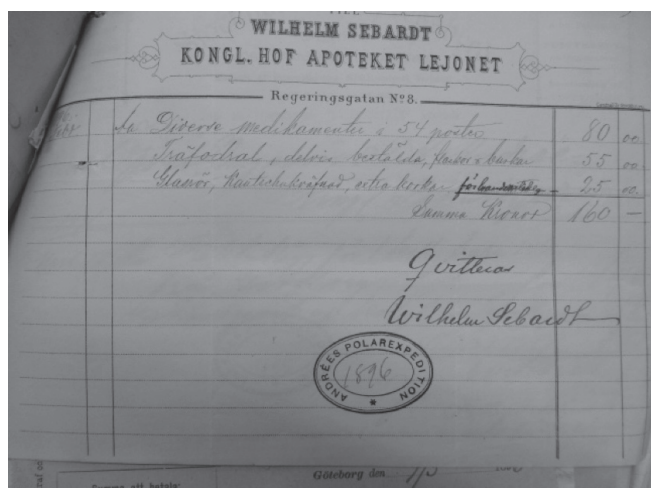 TILL
WILHELM SEBARDT
KONGL. HOF APOTEKET LEJONET
Regeringsgatan Nº 8.
Diverse medikamenter i 54 poster 80 00
Träfodral, delvis beställda, flaskor & burkar 55 00
Glasrör, Kautschukröfvad, extra korkar – 25 00
Summa Kronor 160 –
Qvitteras
Wilhelm Sebardt
ANDRÉES POLAREXPEDITION
1896
Göteborg den
Summa att betala: